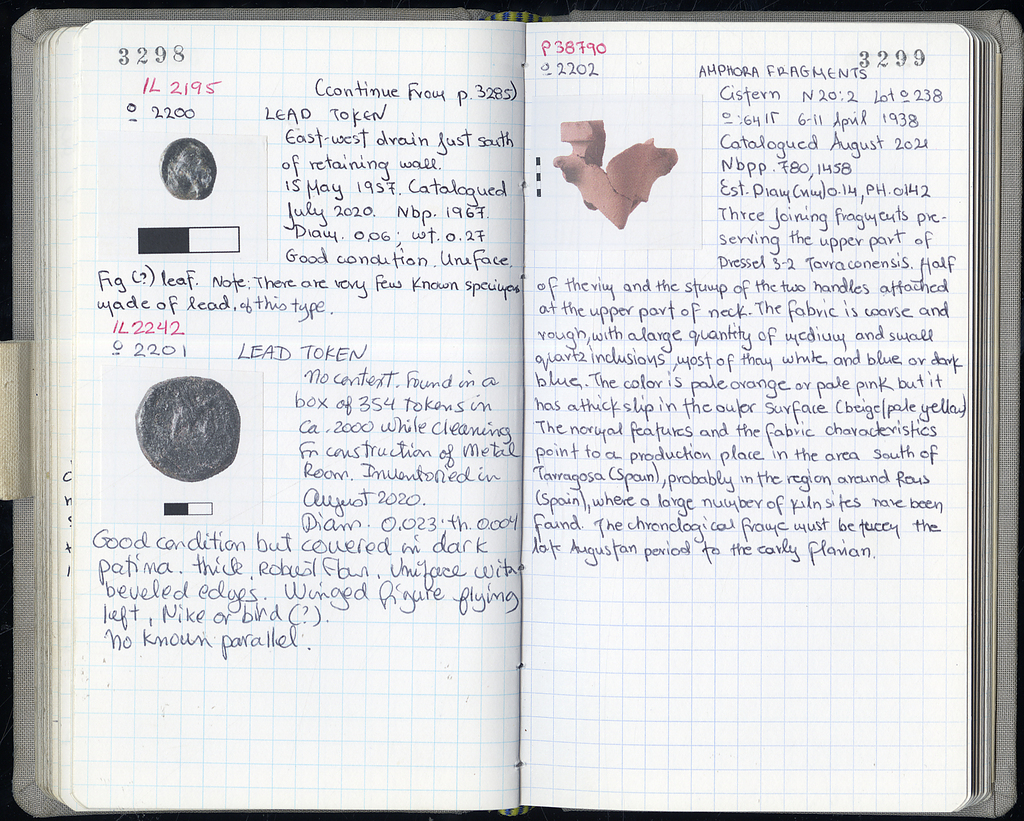 3298
IL 2195
(continue from p. 3285)
o 2200 LEAD TOKEN
East-west drain just south
of retaining wall.
15 May 1957. Catalogued
July 2020. Nbp. 1967.
Diam. 0.06; wt. 0.27
Good condition. Uniface.
Fig (?) leaf. Note: There are very few known specimens
made of lead, of this type.
IL2242
o 2201 LEAD TOKEN
No context. Found in a
box of 354 tokens in
ca. 2000 while cleaning
for construction of Metal
Room. Inventoried in
August 2020.
Diam. 0.023; th. 0.004
Good condition but covered in dark
patina. Thick, Robust flan. Uniface with
beveled edges. Winged figure flying
left, Nike or bird (?).
No known parallel.
3299
P38790
o 2202
AMPHORA FRAGMENTS
Cistern N 20:2 Lot o 238
6-11 April 1938
Catalogued August 2021
Nbpp. 780, 1458
Est. Diam (rim) 0.14, PH. 0.142
Three joining fragments pre-
serving the upper part of
Dressel 3-2 Tarraconensis. Half
of the rim and the stump of the two handles attached
at the upper part of neck. The fabric is coarse and
rough, with a large quantity of medium and small
quartz inclusions, most of them white and blue or dark
blue. The color is pale orange or pale pink but it
has a thick slip in the outer surface (beige/pale yellow)
The normal features and the fabric characteristics
point to a production place in the area south of
Tarragosa (Spain), probably in the region around
(Spain), where a large number of kiln sites have been
found. The chronological frame must be the
late Augustan period to the early Flavian.